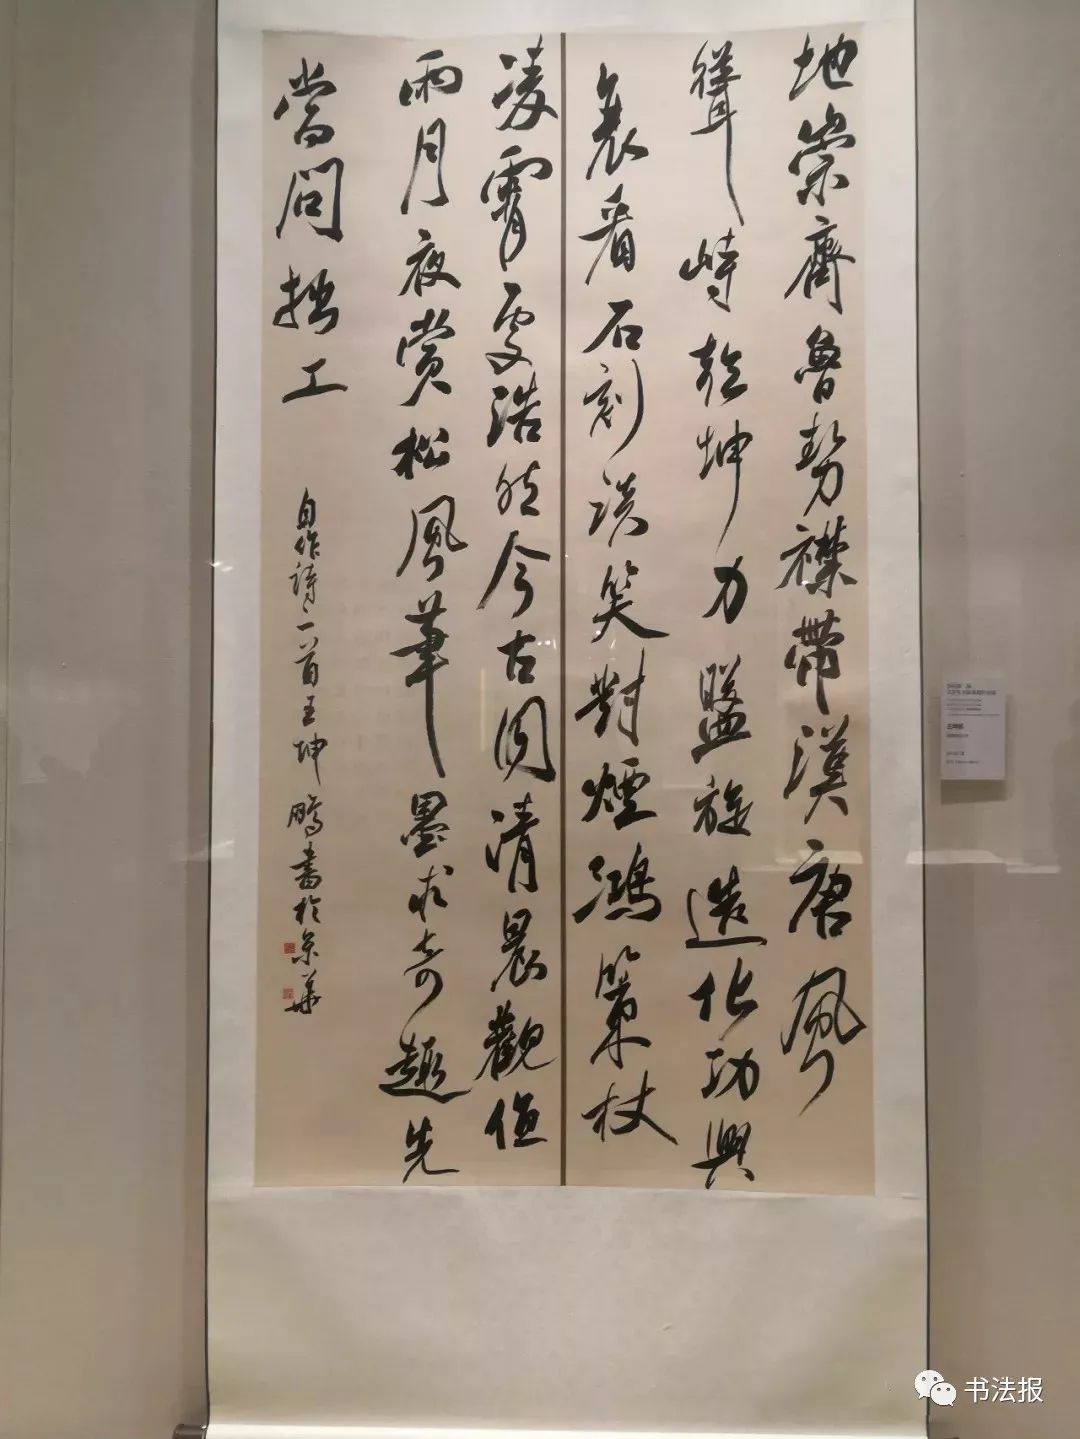 地崇齊魯勢襟帶漢唐風
聳峙乾坤力盤旋造化功興
衰看石刻談笑對煙鴻策杖
凌霄處浩然今古同清晨觀值
雨月夜賞松風筆墨求奇趣先
當問拙工
自作詩一首王坤鵬書於京華
书法报